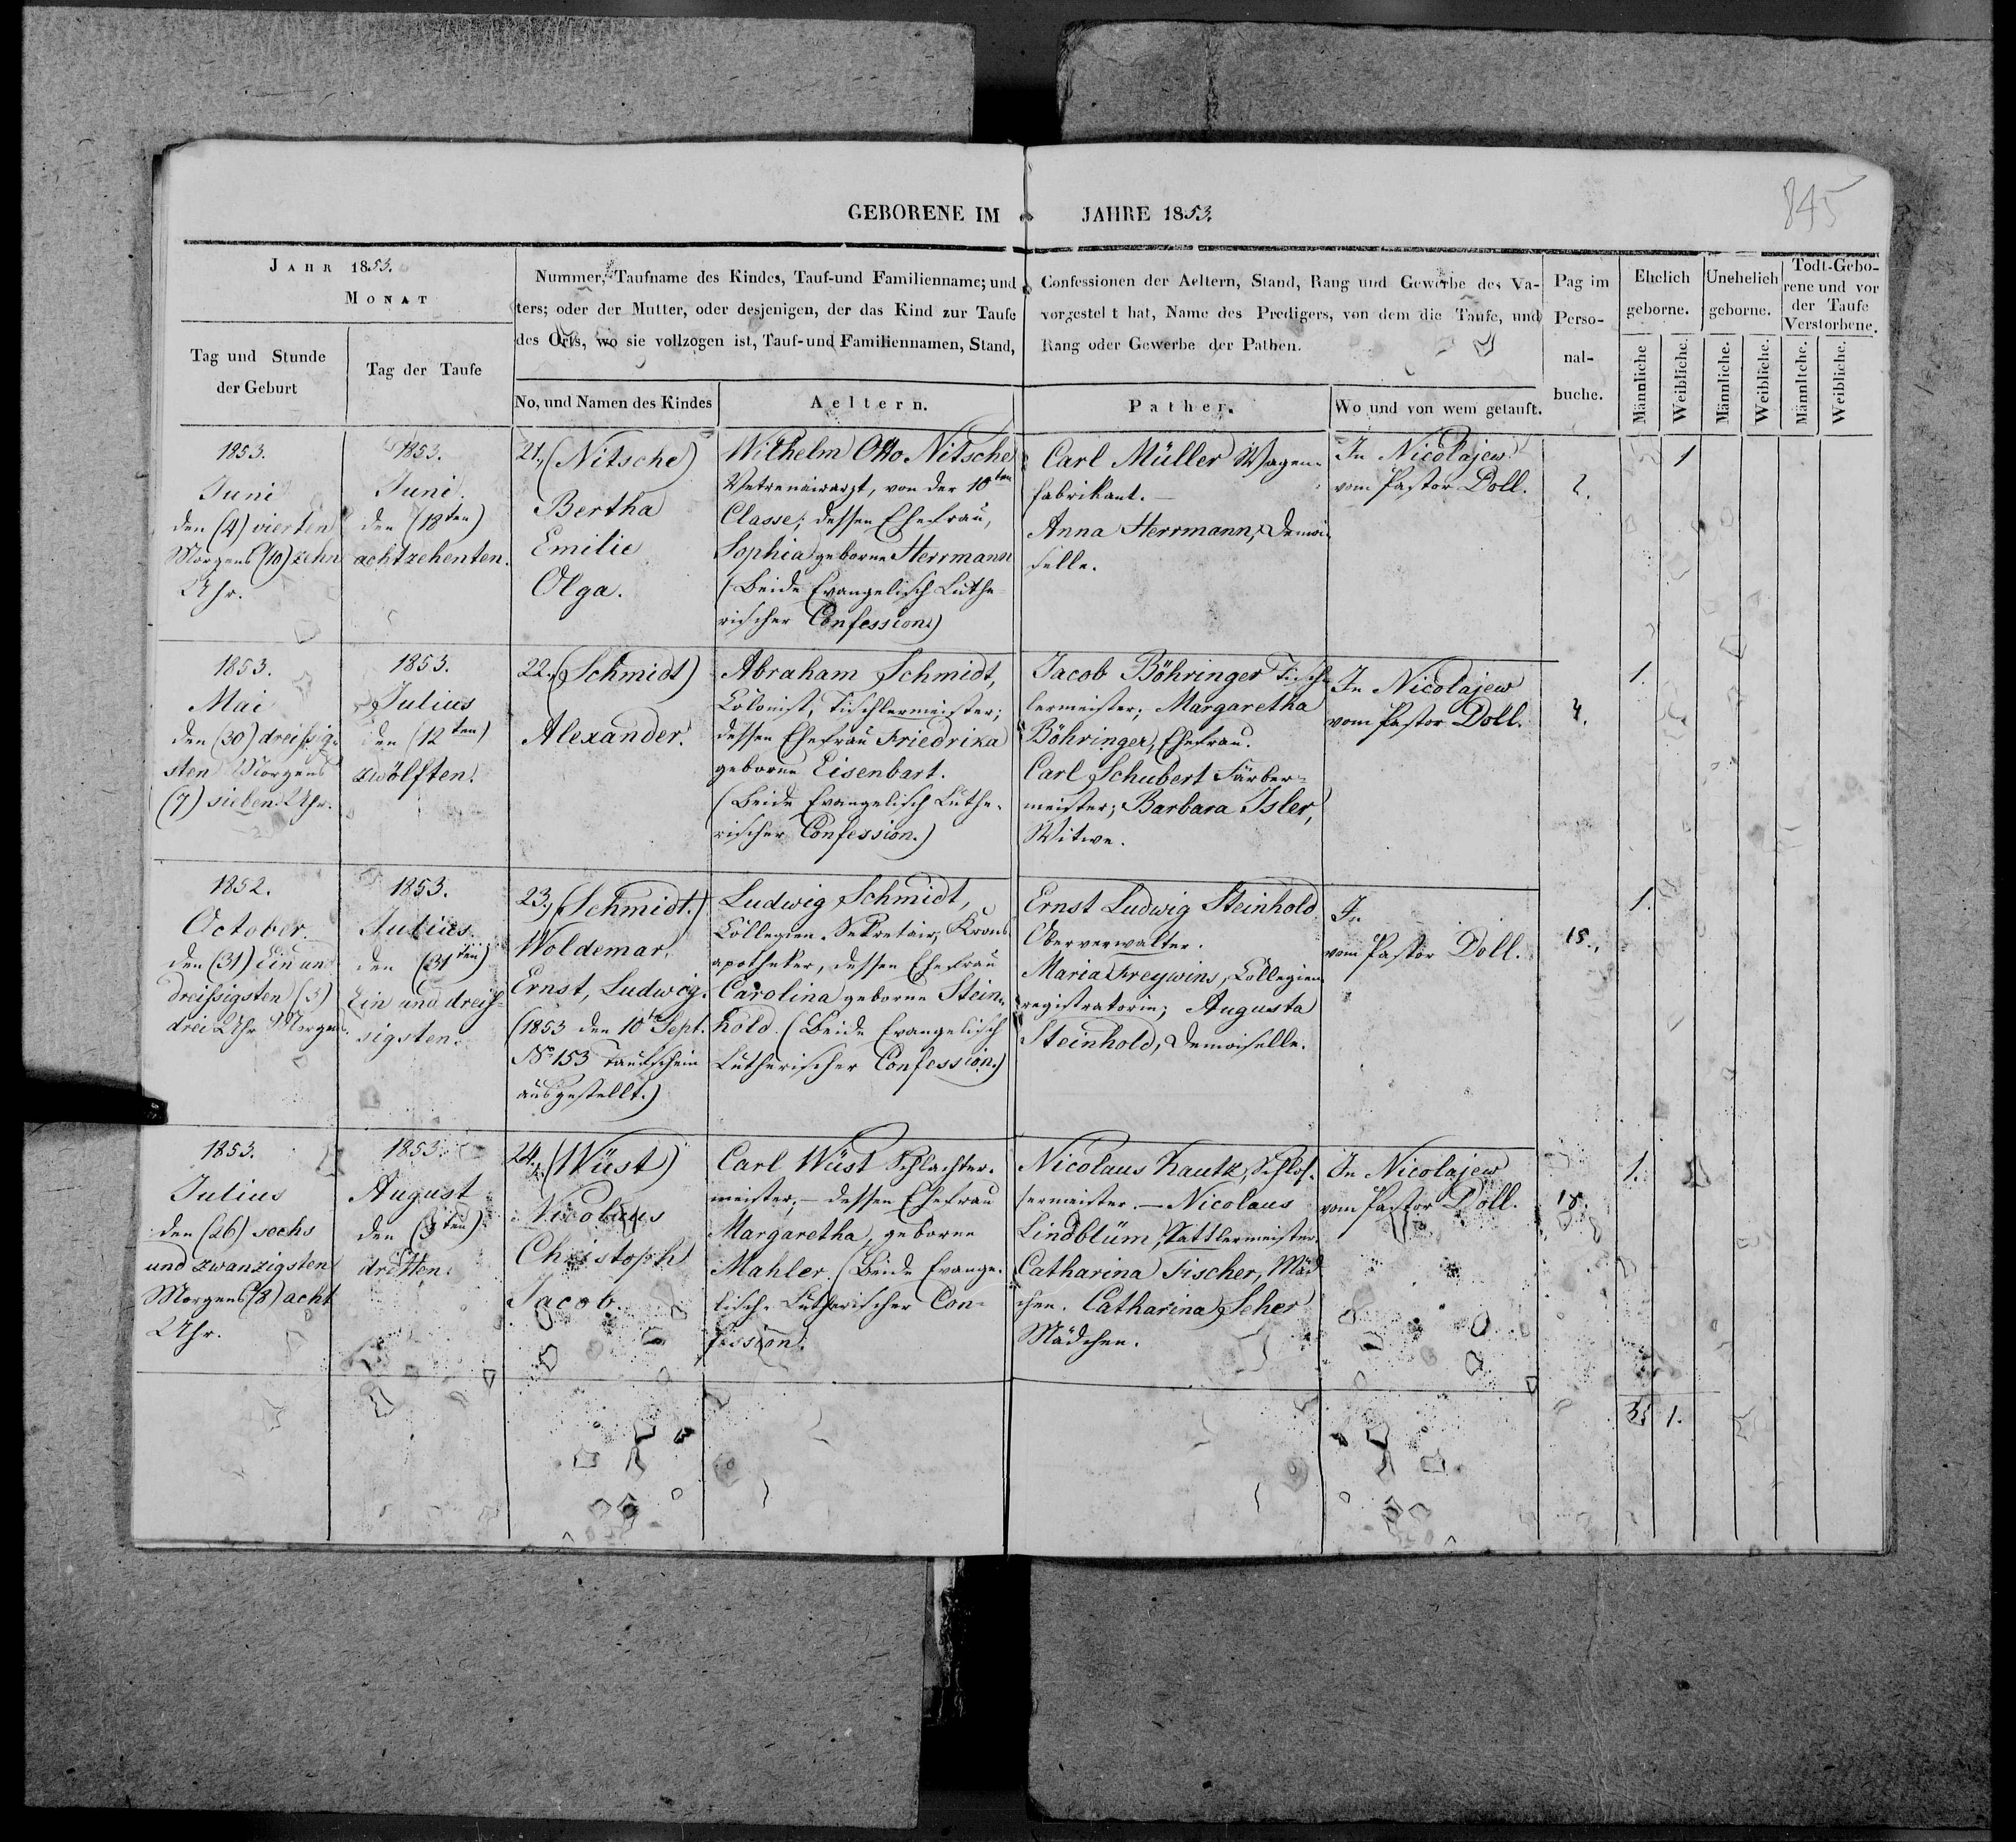 845
GEBORENE IM JAHRE 1853.
JAHR 1853.
MONAT
Tag und Stunde
der Geburt
Tag der Taufe
Nummer, Taufname des Kindes, Tauf-und Familienname; und
ters; oder der Mutter, oder desjenigen, der das Kind zur Taufe
des Orts, wo sie vollzogen ist, Tauf-und Familiennamen, Stand,
No, und Namen des Kindes
Aeltern.
Confessionen der Aeltern, Stand, Rang und Gewerbe des Va-
vorgestel t hat, Name des Predigers, von dem die Taufe, und
Rang oder Gewerbe der Pathen.
Pather.
Wo und von wem getauft.
Pag im
Perso-
nal-
buche.
Ehelich
geborne.
Unehelich
geborne.
Todt-Gebo-
rene und vor
der Taufe
Verstorbene.
Männliche
Weibliche.
Männliche.
Weibliche.
Männltche.
Weibliche.
1853.
Juni
den (4) vierten
Morgens (10) zehn
Uhr.
1853.
Juni.
den (18ten)
achtzehenten.
21., (Nitsche)
Bertha
Emilie
Olga.
Wilhelm Otto Nitsche
Vetrenairarzt, von der 10ten
Classe; dessen Ehefrau,
Sophia geborne Herrmann
(Beide Evangelisch Luthe-
rischer Confession)
Carl Müller Wagen-
fabrikant. —
Anna Herrmann, Demoi-
selle.
In Nicolajew
vom Pastor Doll.
2.
1
1853.
Mai
den (30) dreißig-
sten Morgens
(7) sieben Uhr.
1853.
Julius
den (12ten)
zwölften.
22., (Schmidt)
Alexander.
Abraham Schmidt,
Colonist, Tischlermeister;
dessen Ehefrau Friedrika
geborne Eisenbart.
(Beide Evangelisch Luthe-
rischer Confession.)
Jacob Böhringer Tisch-
lermeister; Margaretha
Böhringer, Ehefrau.
Carl Schubert Färber-
meister; Barbara Isler,
Witwe.
In Nicolajew
vom Pastor Doll.
4.
1.
1852.
October
den (31) Ein un
dreißigsten (3)
drei Uhr Morgens.
1853.
Julius.
den (31ten)
Ein und dreiß-
sigsten.
23., (Schmidt.)
Woldemar,
Ernst, Ludwig.
(1853 den 10ten Sept.
No 153 Taufschein
ausgestellt.)
Ludwig Schmidt,
Collegien-Sekretair, Krons
apotheker, dessen Ehefrau
Carolina geborne Stein-
hold. (Beide Evangelisch
Lutherischer Confession.)
Ernst Ludwig Steinhold
Oberverwalter.
Maria Freywins, Collegien
registratorin; Augusta
Steinhold, Demoiselle.
In
vom Pastor Doll.
15.
1.
1853.
Julius
den (26) sechs
und zwanzigsten
Morgens (8) acht
Uhr.
1853.
August
den (3ten)
dritten.
24., (Wüst)
Nicolaus
Christoph
Jacob.
Carl Wüst Schlachter-
meister; — dessen Ehefrau
Margaretha, geborne
Mahler. (Beide Evange-
lisch-Lutherischer Con-
fession.
Nicolaus Kautz, Schlos-
sermeister. — Nicolaus
Lindblüm, Sattlermeister.
Catharina Fischer, Mäd
chen. Catharina Seher
Mädchen.
In Nicolajew
vom Pastor Doll.
18.
1.
3. 1.